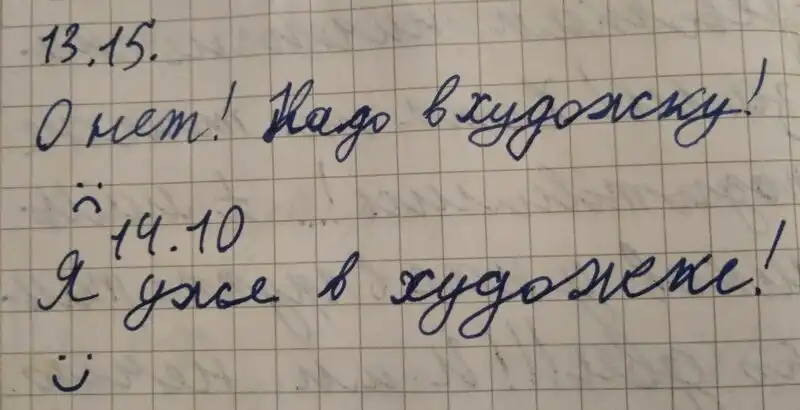 13.15.
О нет! Надо в художку!
:(
14.10
Я уже в художке!
:)